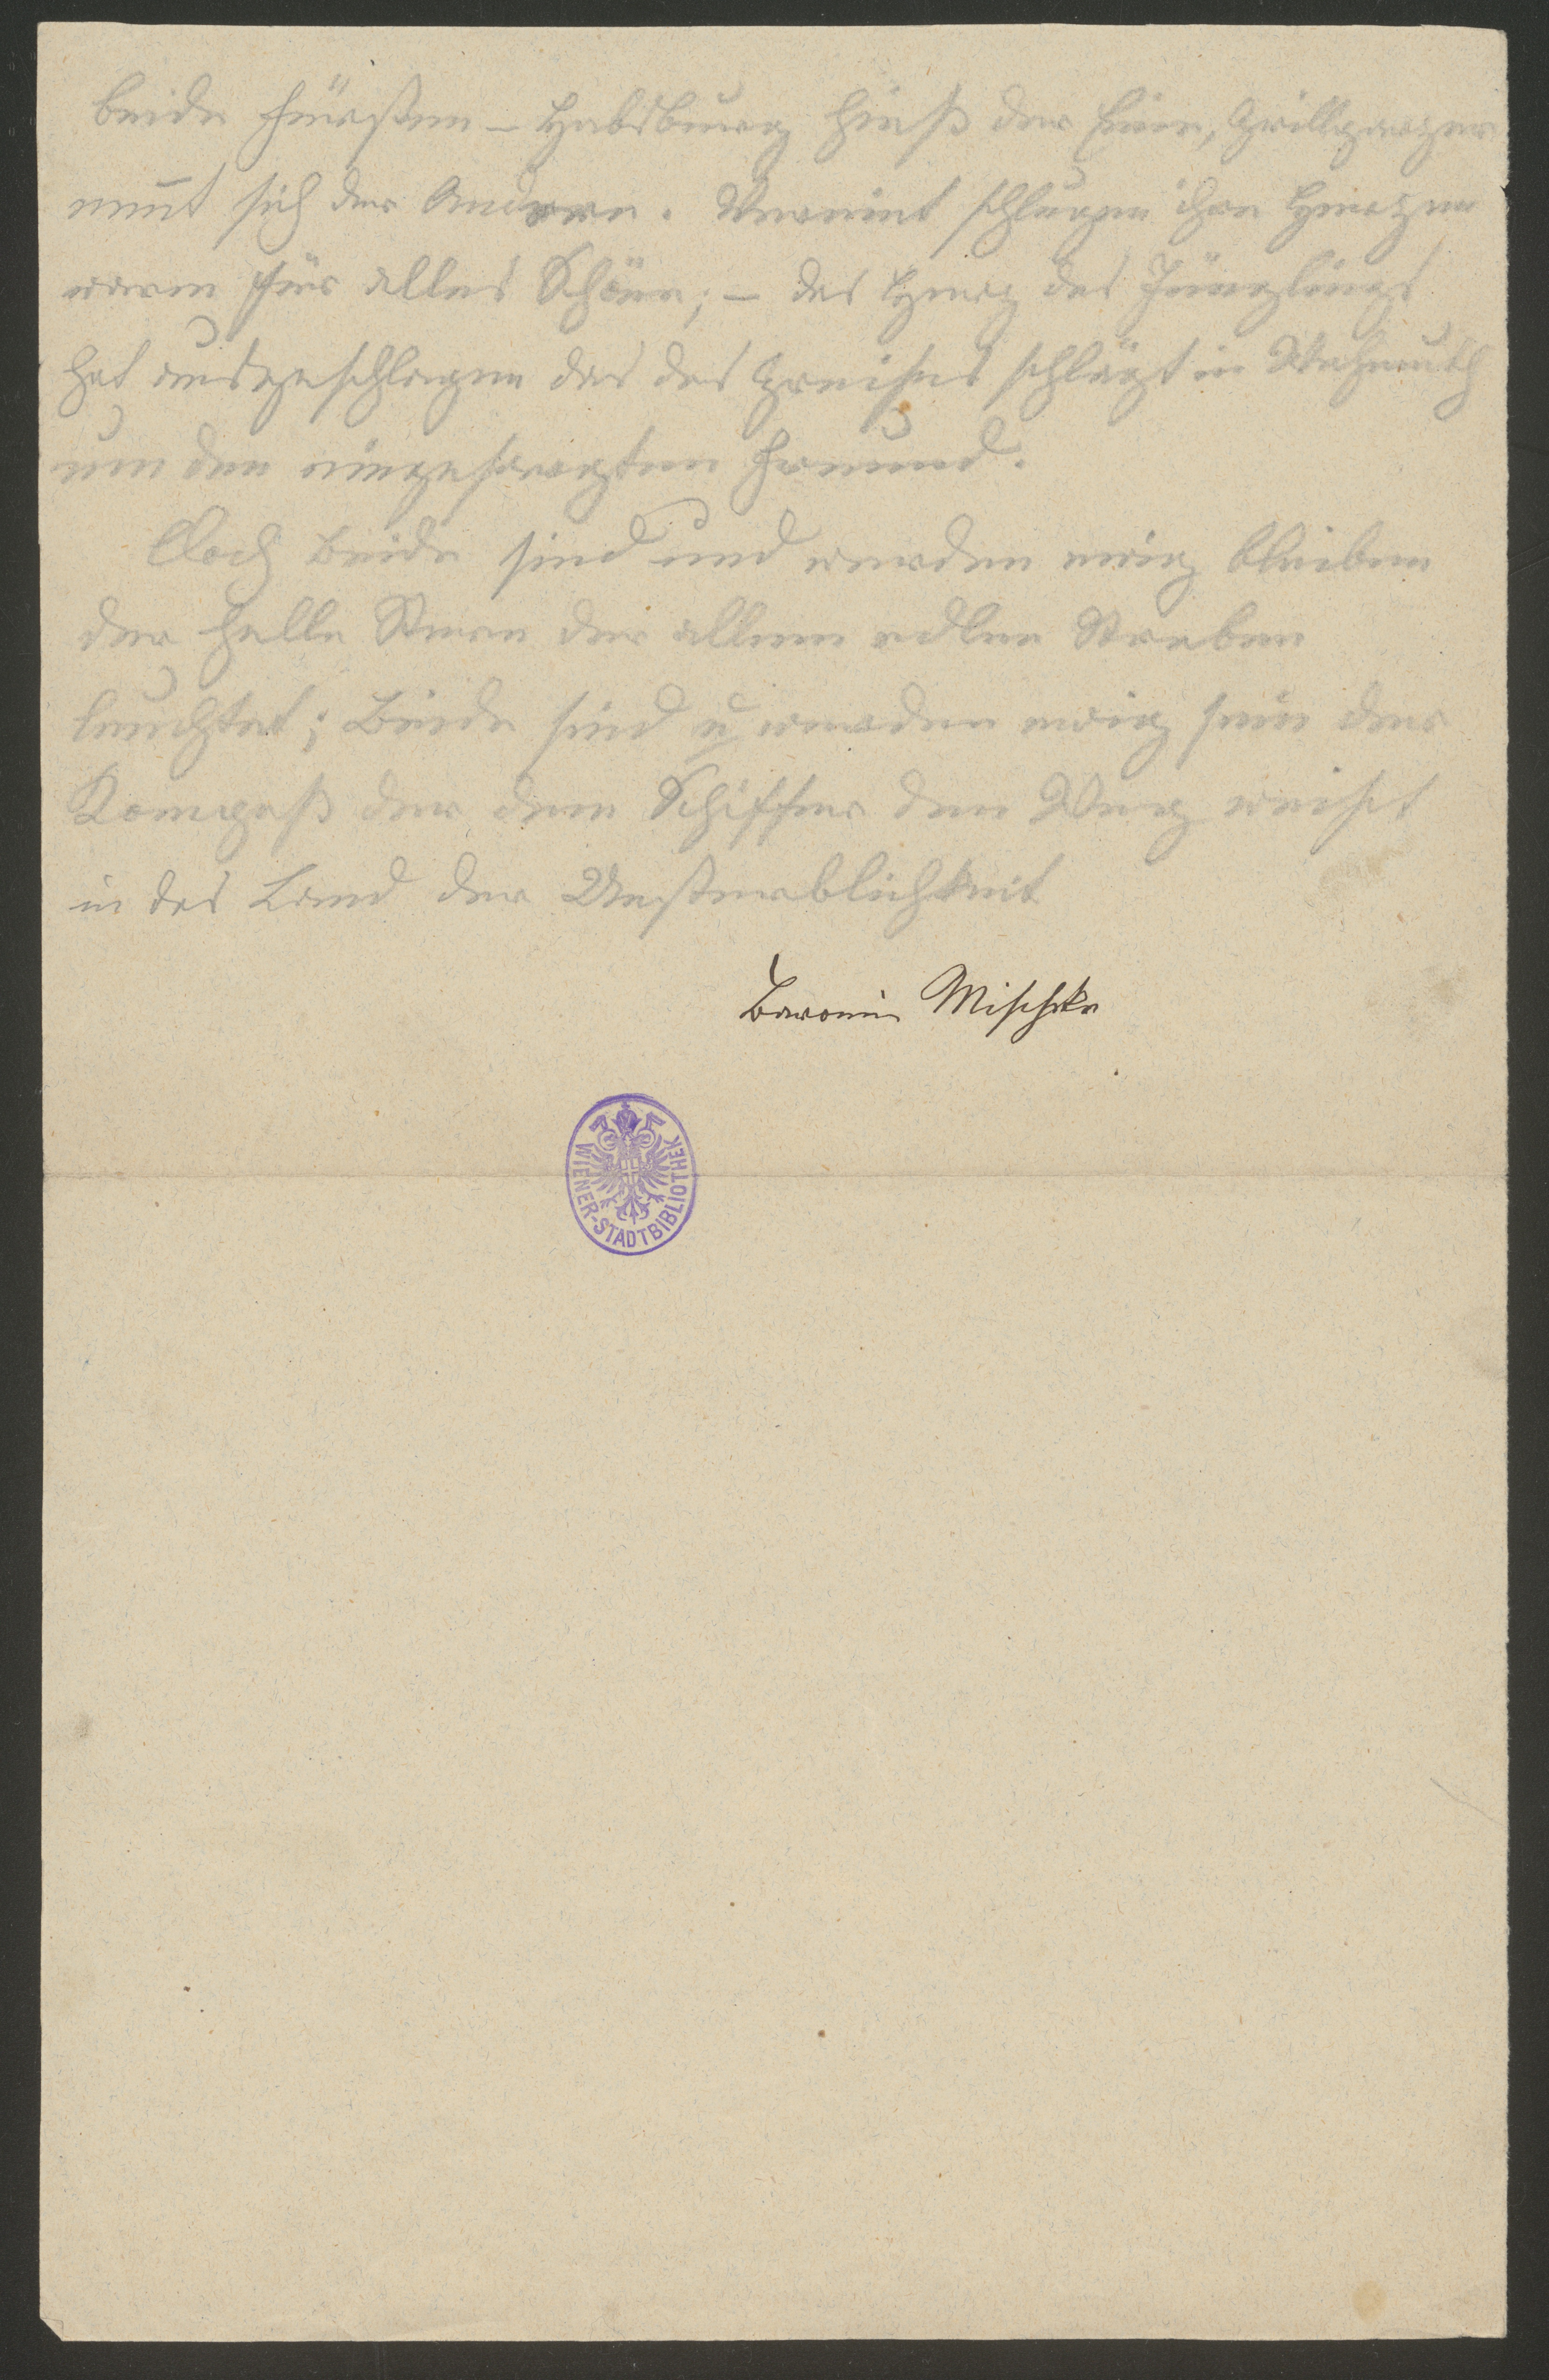 beide Fürsten – Habsburg hieß der Eine, Grillparzer
nen̄t sich der Andere. Vereint schlugen ihre Herzen
warm für alles Schöne; – das Herz des Jünglings
hat ausgeschlagen das des Greises schlägt in Wehmuth
um den eingesargten Freund.
Doch beide sind und werden ewig bleiben
der helle Stern der allem edlen Streben
leuchtet; Beide sind u werden ewig sein der
Kompaß der dem Schiffer den Weg weist
in das Land der Unsterblichkeit
Baronin Mischke
WIENER-STADTBIBLIOTHEK